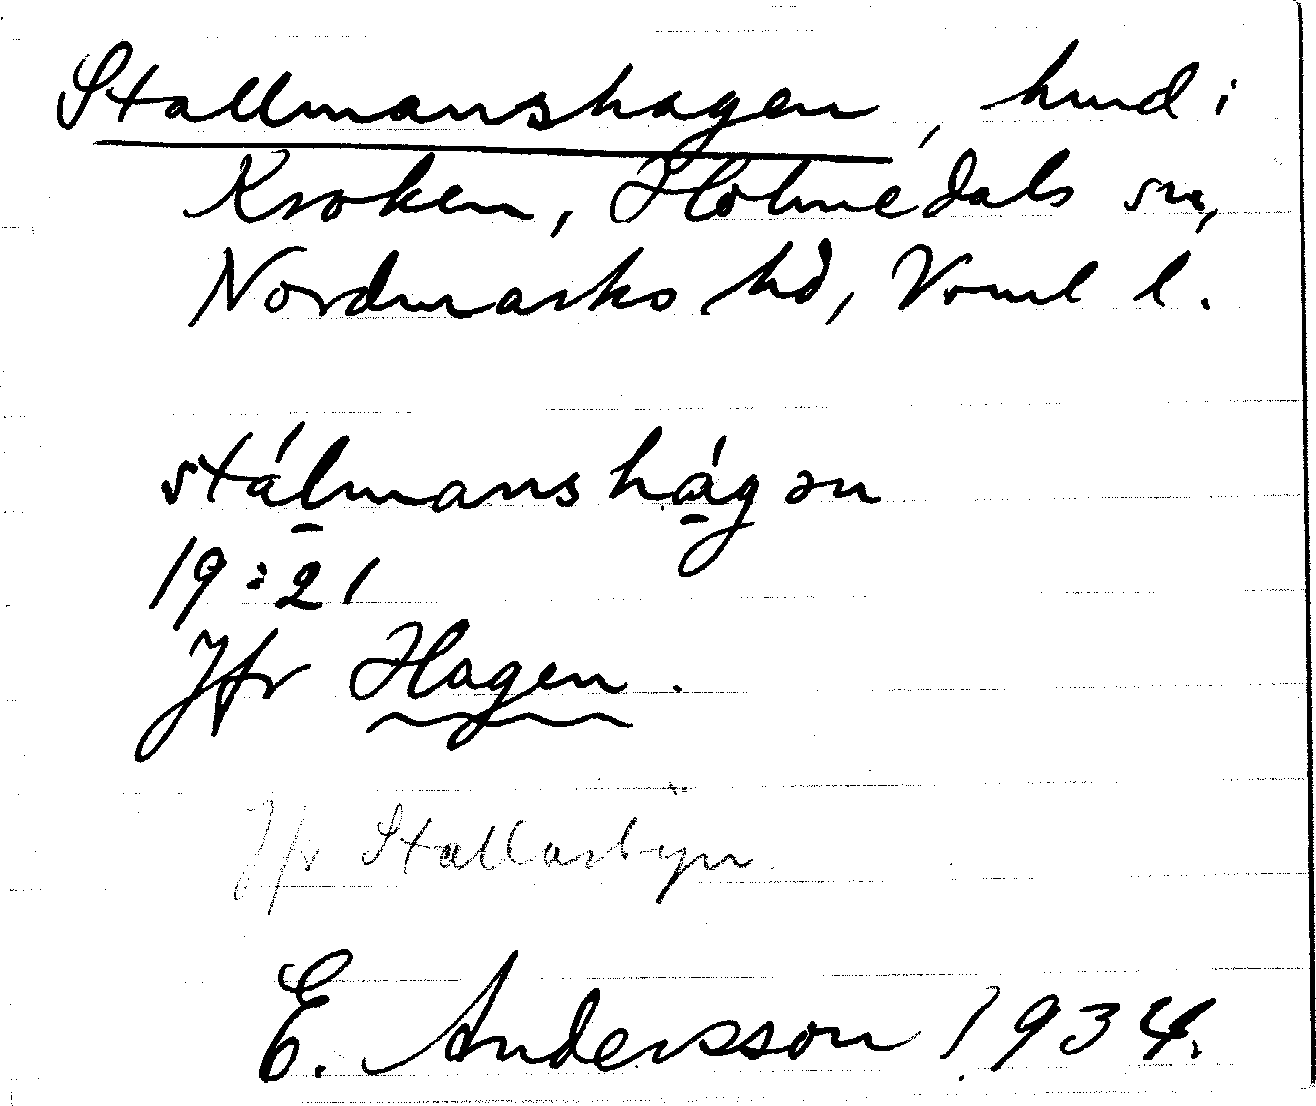 Stallmanshagen, hmd i
Kroken, Holmedals sn,
Nordmarks hd, Verml l.
stálmanshágən
19:21
Jfr Hagen.
Jfr Stallarbyn
E. Andersson 1934.